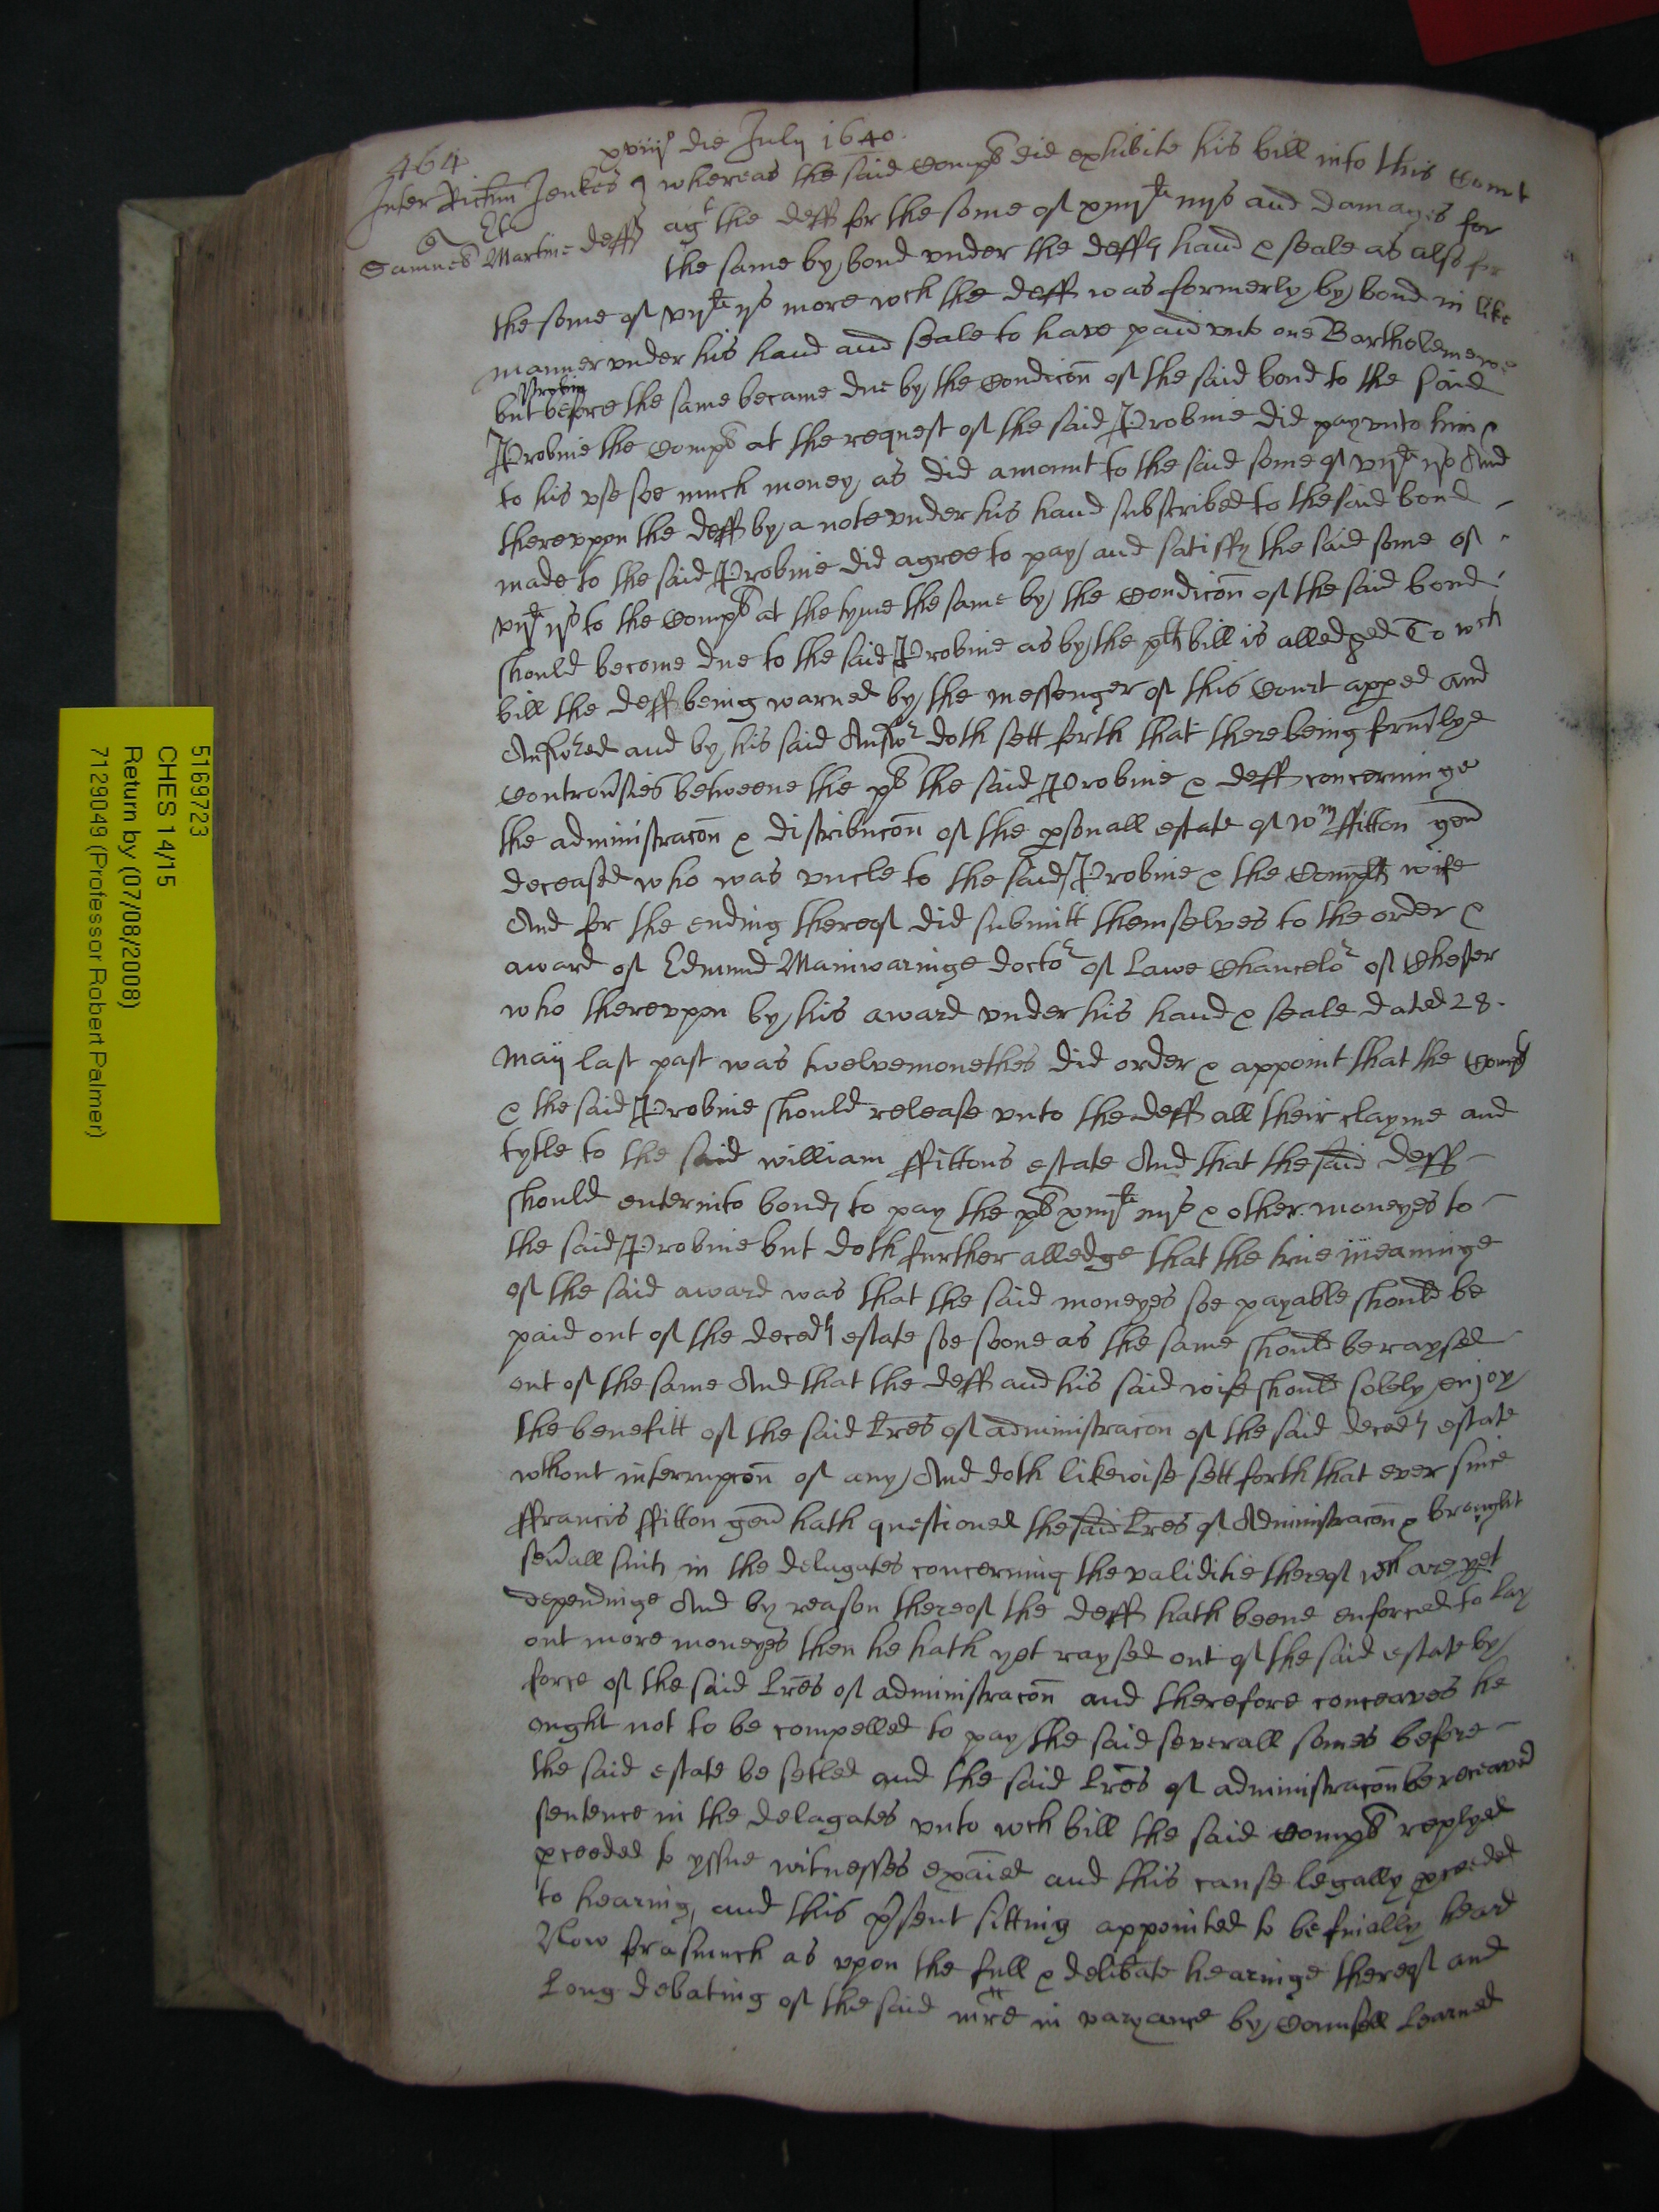 464
xviij° die July 1640.
Inter Ric'um Jenkes
Et
Samuel Martine deff
whereas the said Compl did exhibite his bill into this Court
agt the deff for the some of xiiijli iijs and damages for
the same by bond vnder the deffs hand & seale as also for
the some of vijli ijs more wch the deff was formerly by bond in like
manner vnder his hand and seale to have paid vnto one Bartholemewe
Probin
but before the same became due by the Condicõn of the said bond to the said
Probine the Compl at the request of the said Probine did pay vnto him &
to his vse soe much money as did amount to the said some of vijli ijs And
therevppon the deff by a note vnder his hand subscribed to the said bond
made to the said Probine did agree to pay and satisffy the said some of
vijli ijs to the Compl at the tyme the same by the Condicõn of the said bond
should become due to the said Probine as by the plts bill is alledged To wch
bill the deff being warned by the messenger of this Court apped and
Answred and by his said Answr doth sett forth that there being form'lye
Controu'sies betweene the pl the said Probine & deff concerninge
the administracõn & distribucõn of the psonall estate of Wm ffitton gen
deceased who was vncle to the said Probine & the Complts wife
And for the ending thereof did submitt themselves to the order &
award of Edmund Mainwaringe doctor of Lawe Chancelor of Chester
who therevppon by his award vnder his hand & seale dated 28.
Maij last past was twelvemonethes did order & appoint that the Compl
& the said Probine should release vnto the deff all their clayme and
tytle to the said william ffittons estate And that the said deff
should enter into bonds to pay the pl xiiijli iijs & other moneyes to
the said Probine but doth further alledge that the true meaninge
of the said award was that the said moneyes soe payable should be
paid out of the deceds estate soe soone as the same should be raysed
out of the same And that the deff and his said wife should solely enjoy
the benefitt of the said Lres of administracõn of the said deceds estate
wthout interrupcõn of any And doth likewise sett forth that ever since
ffrancis ffitton gen hath questioned the said Lres of Administracõn & brought
seu'all suits in the delagates concerning the validitie thereof wch are yet
dependinge And by reason thereof the deff hath beene enforced to lay
out more moneyes then he hath yet raysed out of the said estate by
force of the said Lres of administracõn and therefore conceaves he
ought not to be compelled to pay the said severall somes before
the said estate be setled and the said Lres of administracõn be receaved
sentence in the delagates vnto wch bill the said Compl replyed
pceeded to yssue witnesses exaied and this cause legally pceeded
to hearing, and this p'sent sitting appointed to be finially heard
Now forasmuch as vpon the full & delibate hearinge thereof and
Long debating of the said mre in varyance by Counsell Learned
5169723
CHES 14/15
Return by (07/08/2008)
7129049 (Professor Robert Palmer)